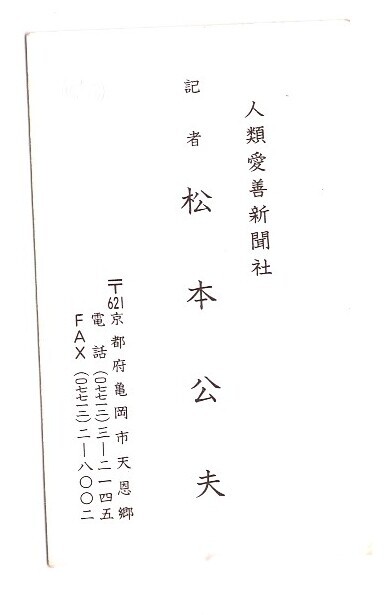 人類愛善新聞社
記者 松本公夫
〒621 京都府亀岡市天恩郷
電話(〇七七一二)三―二一四五
FAX(〇七七一二)二―八〇〇二